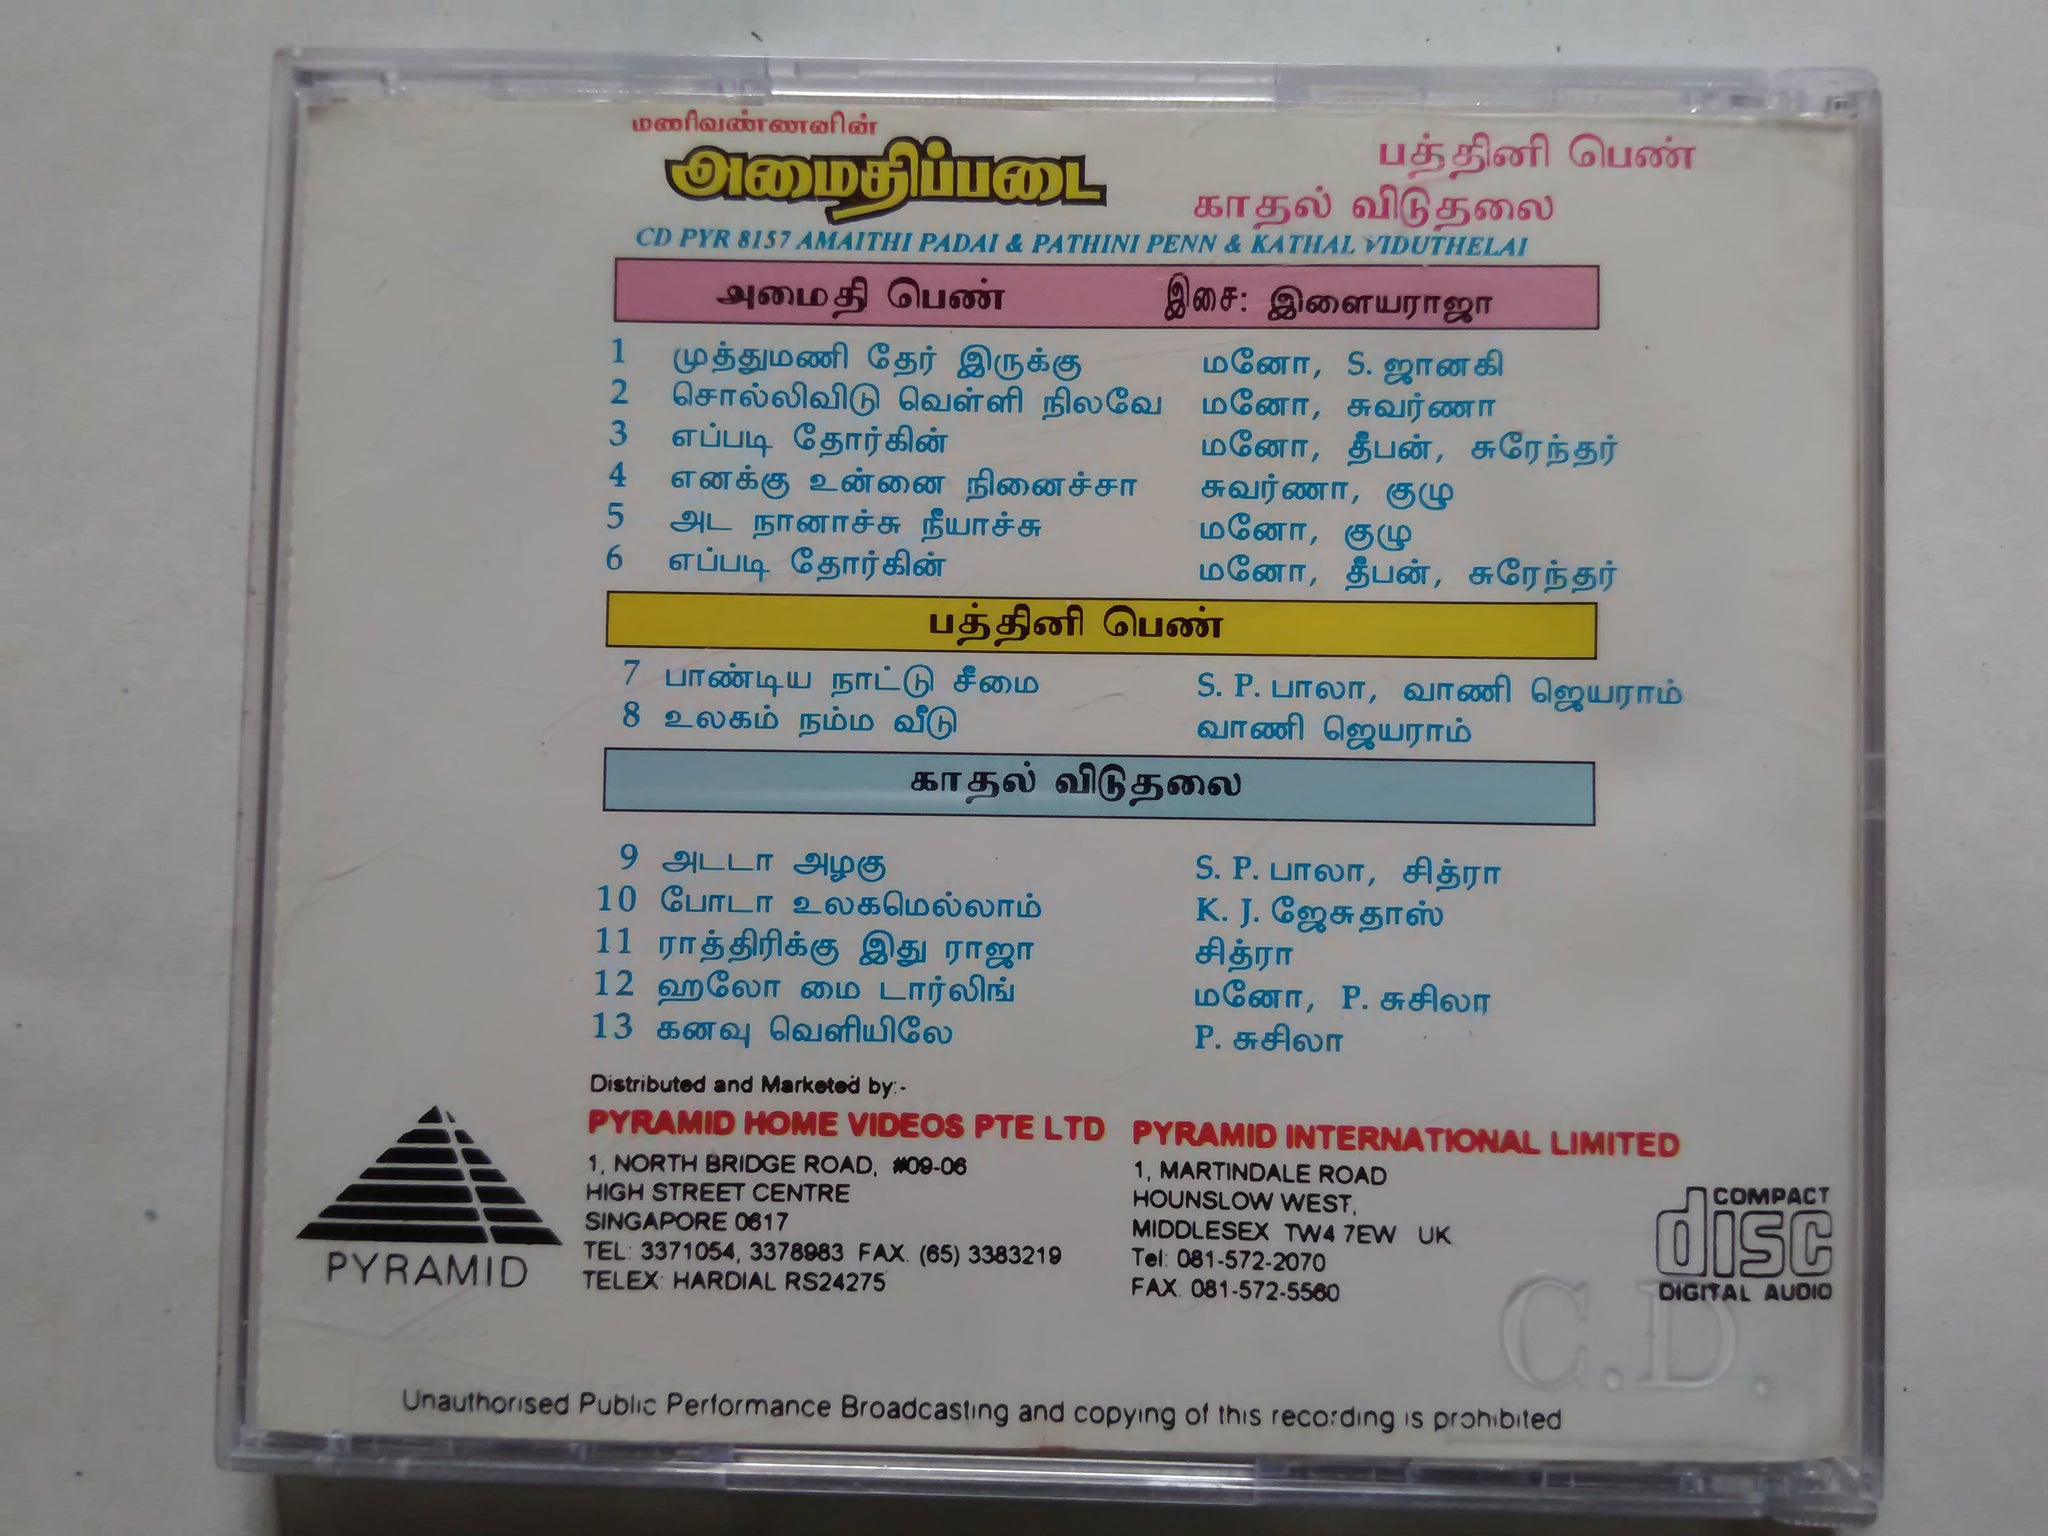 மணிவண்ணனின்
அமைதிப்படை
பத்தினி பெண்
காதல் விடுதலை
CD PYR 8157 AMAITHI PADAI & PATHINI PENN & KATHAL VIDUTHELAI
அமைதி பெண் இசை: இளையராஜா
1 முத்துமணி தேர் இருக்கு மனோ, S. ஜானகி
2 சொல்லிவிடு வெள்ளி நிலவே மனோ, சுவர்ணா
3 எப்படி தோர்கின் மனோ, தீபன், சுரேந்தர்
4 எனக்கு உன்னை நினைச்சா சுவர்ணா, குழு
5 அட நானாச்சு நீயாச்சு மனோ, குழு
6 எப்படி தோர்கின் மனோ, தீபன், சுரேந்தர்
பத்தினி பெண்
7 பாண்டிய நாட்டு சீமை S. P. பாலா, வாணி ஜெயராம்
8 உலகம் நம்ம வீடு வாணி ஜெயராம்
காதல் விடுதலை
9 அடடா அழகு S. P. பாலா, சித்ரா
10 போடா உலகமெல்லாம் K. J. ஜேசுதாஸ்
11 ராத்திரிக்கு இது ராஜா சித்ரா
12 ஹலோ மை டார்லிங் மனோ, P. சுசிலா
13 கனவு வெளியிலே P. சுசிலா
Distributed and Marketed by:-
PYRAMID HOME VIDEOS PTE LTD
1, NORTH BRIDGE ROAD, #09-06
HIGH STREET CENTRE
SINGAPORE 0617
TEL: 3371054, 3378983 FAX. (65) 3383219
TELEX: HARDIAL RS24275
PYRAMID INTERNATIONAL LIMITED
1, MARTINDALE ROAD
HOUNSLOW WEST,
MIDDLESEX TW4 7EW UK
Tel: 081-572-2070
FAX: 081-572-5560
PYRAMID
COMPACT
disc
DIGITAL AUDIO
C.D.
Unauthorised Public Performance Broadcasting and copying of this recording is prohibited